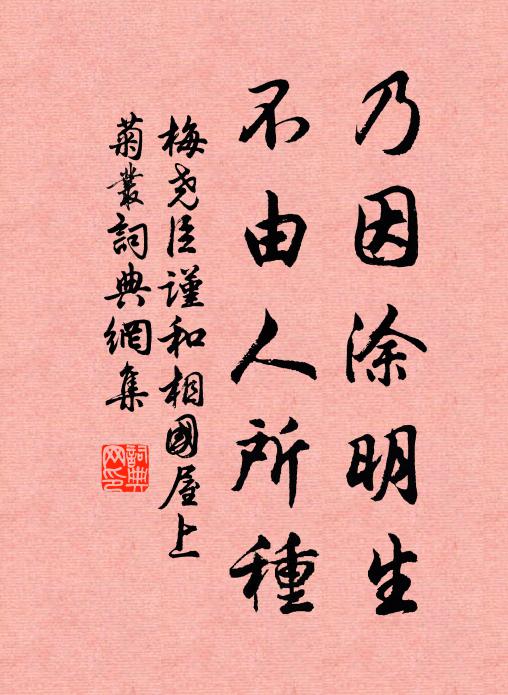 乃因涂明生
不由人所種
梅尧臣謹和相國屋上
菊叢詞典網集
詞典
网印